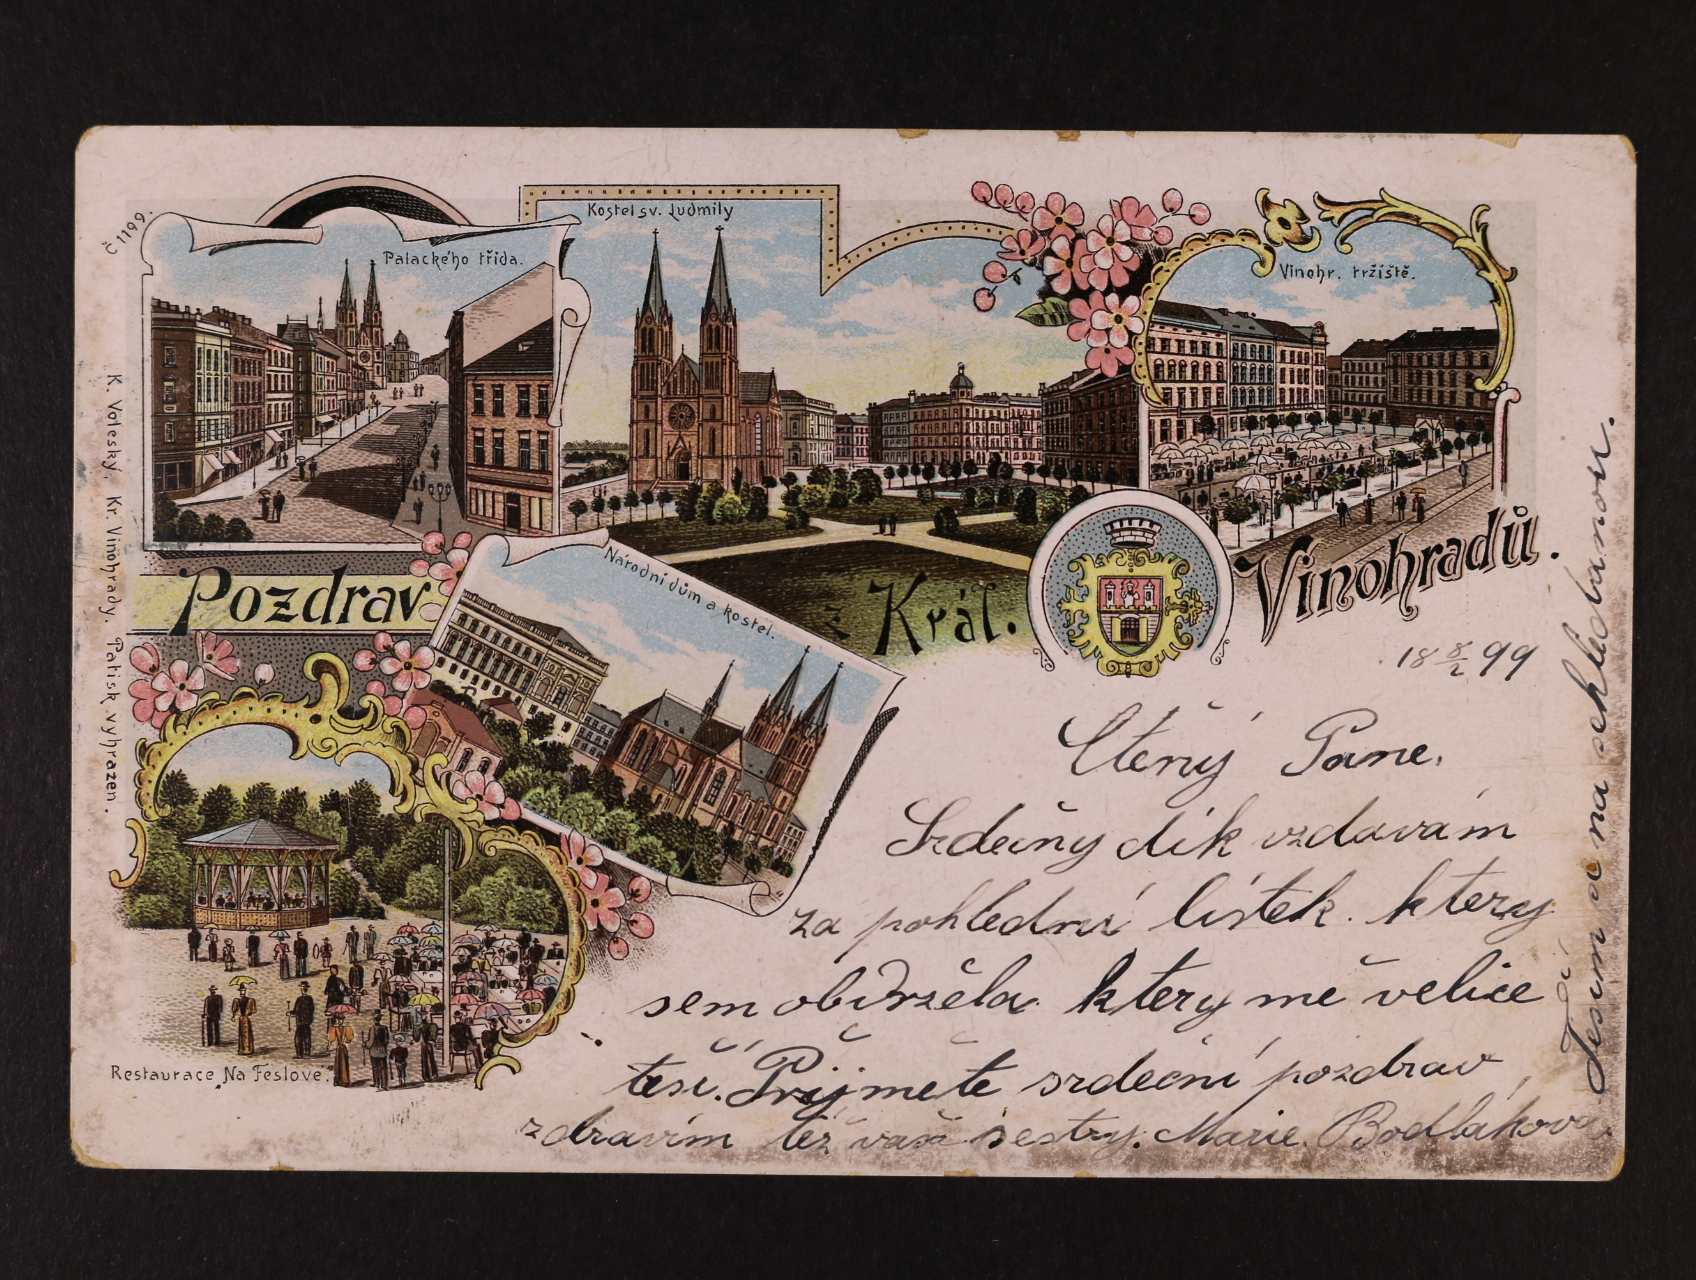 Č 1199.
Palackého třída.
Kostel sv. Ludmily
Vinohr. tržiště.
K. Voleský, Kr. Vinohrady. Patisk vyhrazen.
Pozdrav z Král. Vinohradů.
Národní dům a kostel.
Restaurace „Na Feslovce.
18 8/2 99
Ctěný Pane.
Srdečný dík vzdávám
za pohlední lístek. který
sem obdržela který mě velice
těší. Přijměte srdeční pozdrav
zdravím též vaše sestry. Marie Bodláková
Těším se na shledanou.